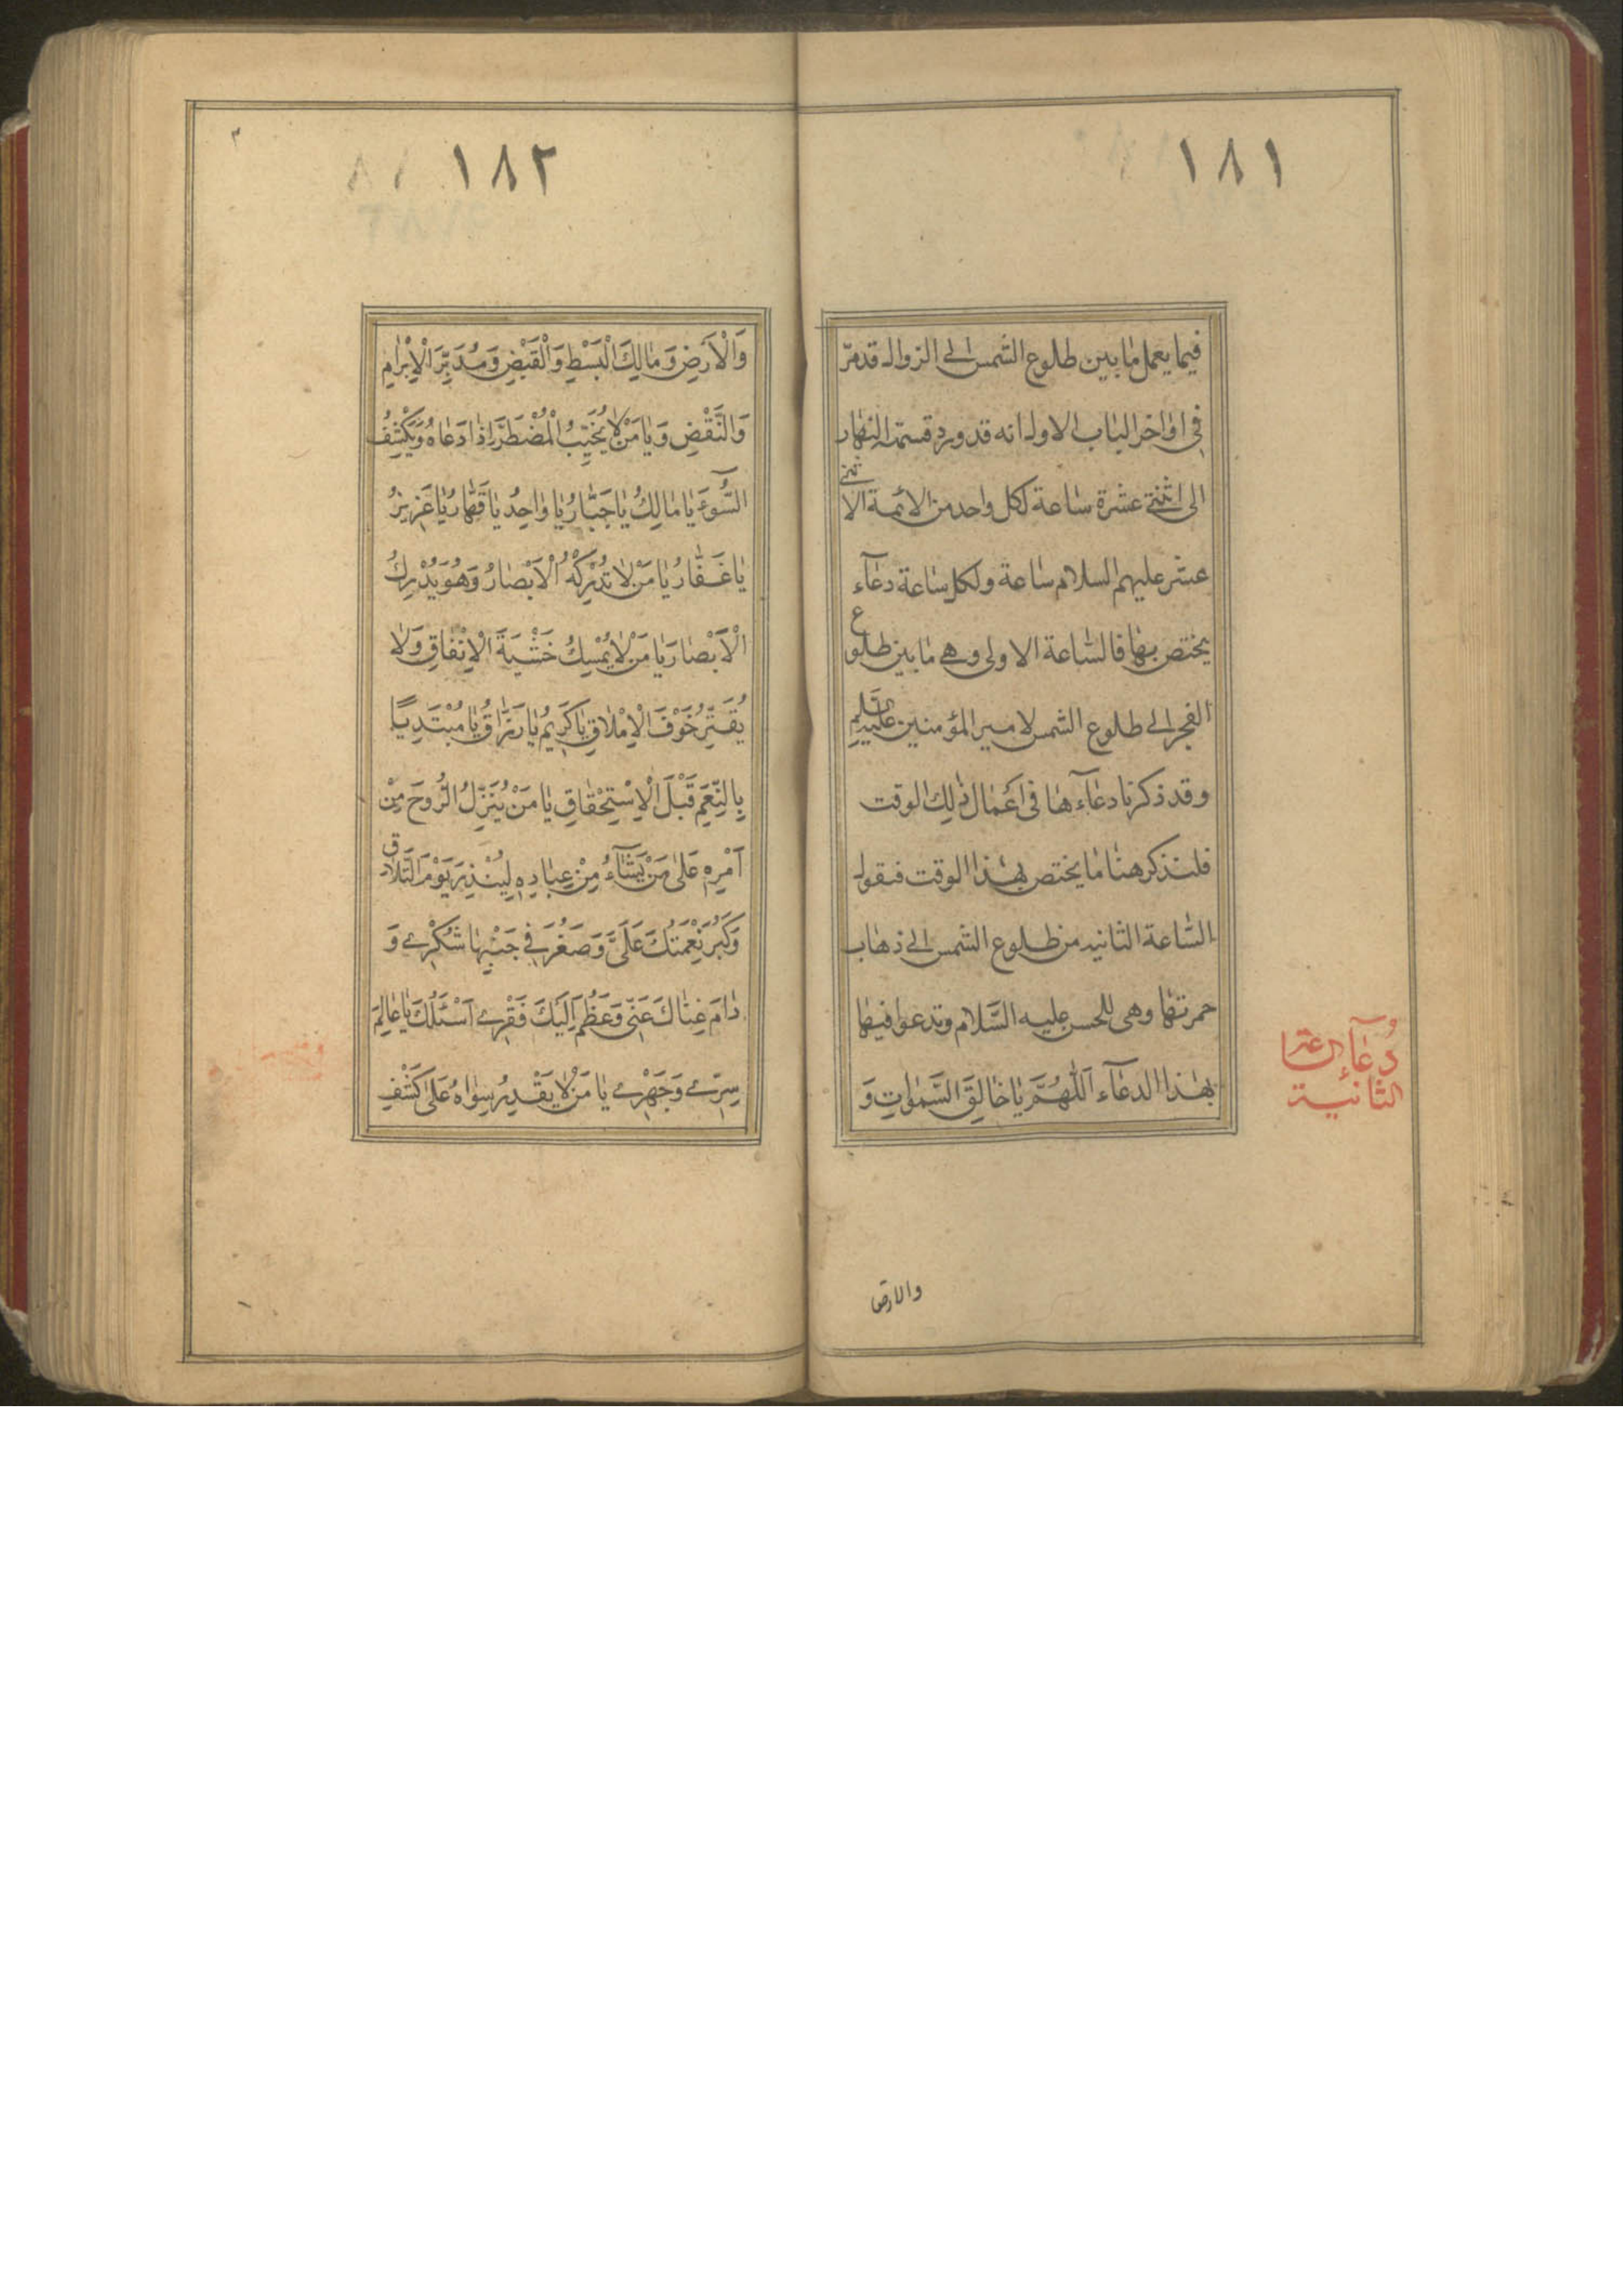 ١٨١
فيما يعمل ما بين طلوع الشمس الى الزوال قد مرّ
فى اواخر الباب الاول انه قد ورد قسمة النهار
الى اثنتى عشرة ساعة لكل واحد من الائمة الاثنى
عشر عليهم السلام ساعة ولكل ساعة دعآء
يختص بها فالساعة الاولى وهى ما بين طلوع
الفجر الى طلوع الشمس لامير المؤمنين عليه السلم
وقد ذكرنا دعآءها فى اعمال ذلك الوقت
فلنذكر هنا ما يختص بهذا الوقت فنقول
الساعة الثانيه من طلوع الشمس الى ذهاب
حمرتها وهى للحسن عليه السَّلام وتدعوا فيها
بهذا الدعآء اَللّٰهُمَّ يَا خَالِقَ السَّمٰواتِ وَ
دُعآء الساعة
الثانية
والارض
١٨٢
وَالْاَرَضِ وَمَالِكَ الْبَسْطِ وَالْقَبْضِ وَمُدَبِّرَ الْاِبْرٰامِ
وَالنَّقْضِ وَيَا مَنْ لَا يُخَيِّبُ الْمُضْطَرَّ اِذَا دَعَاهُ وَيَكْشِفُ
السُّوۤءَ يَا مَالِكُ يَا جَبَّارُ يَا وَاحِدُ يَا قَهَّارُ يَا عَزِيزُ
يَا غَفَّارُ يَا مَنْ لَا تُدْرِكُهُ الْاَبْصَارُ وَهُوَ يُدْرِكُ
الْاَبْصَارَ يَا مَنْ لَا يُمْسِكُ خَشْيَةَ الْاِنْفَاقِ وَلَا
يُقَتِّرُ خَوْفَ الْاِمْلَاقِ يَا كَرِيمُ يَا رَزَّاقُ يَا مُبْتَدِيًا
بِالنِّعَمِ قَبْلَ الْاِسْتِحْقَاقِ يَا مَنْ يُنَزِّلُ الرُّوحَ مِنْ
اَمْرِهِ عَلٰى مَنْ يَشَآءُ مِنْ عِبَادِهِ لِيُنْذِرَ يَوْمَ التَّلَاقِ
وَكَبُرَ نِعْمَتُكَ عَلَيَّ وَصَغُرَ فِى جَنْبِهَا شُكْرِى وَ
دَامَ غِنَاكَ عَنِّى وَعَظُمَ اِلَيْكَ فَقْرِى اَسْئَلُكَ يَا عَالِمَ
سِرِّى وَجَهْرِى يَا مَنْ لَا يَقْدِرُ سِوَاهُ عَلٰى كَشْفِ